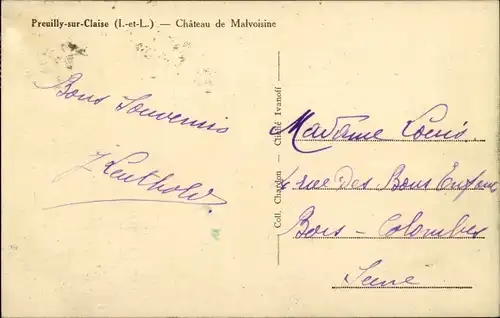 Preuilly-sur-Claise (I.-et-L.) — Château de Malvoisine
Bons Souvenirs
J Leuthold.
Coll. Chardon - Cliché Ivanoff
Madame Louis
4 rue Des Bons Enfants
Bois - Colombes
Seine